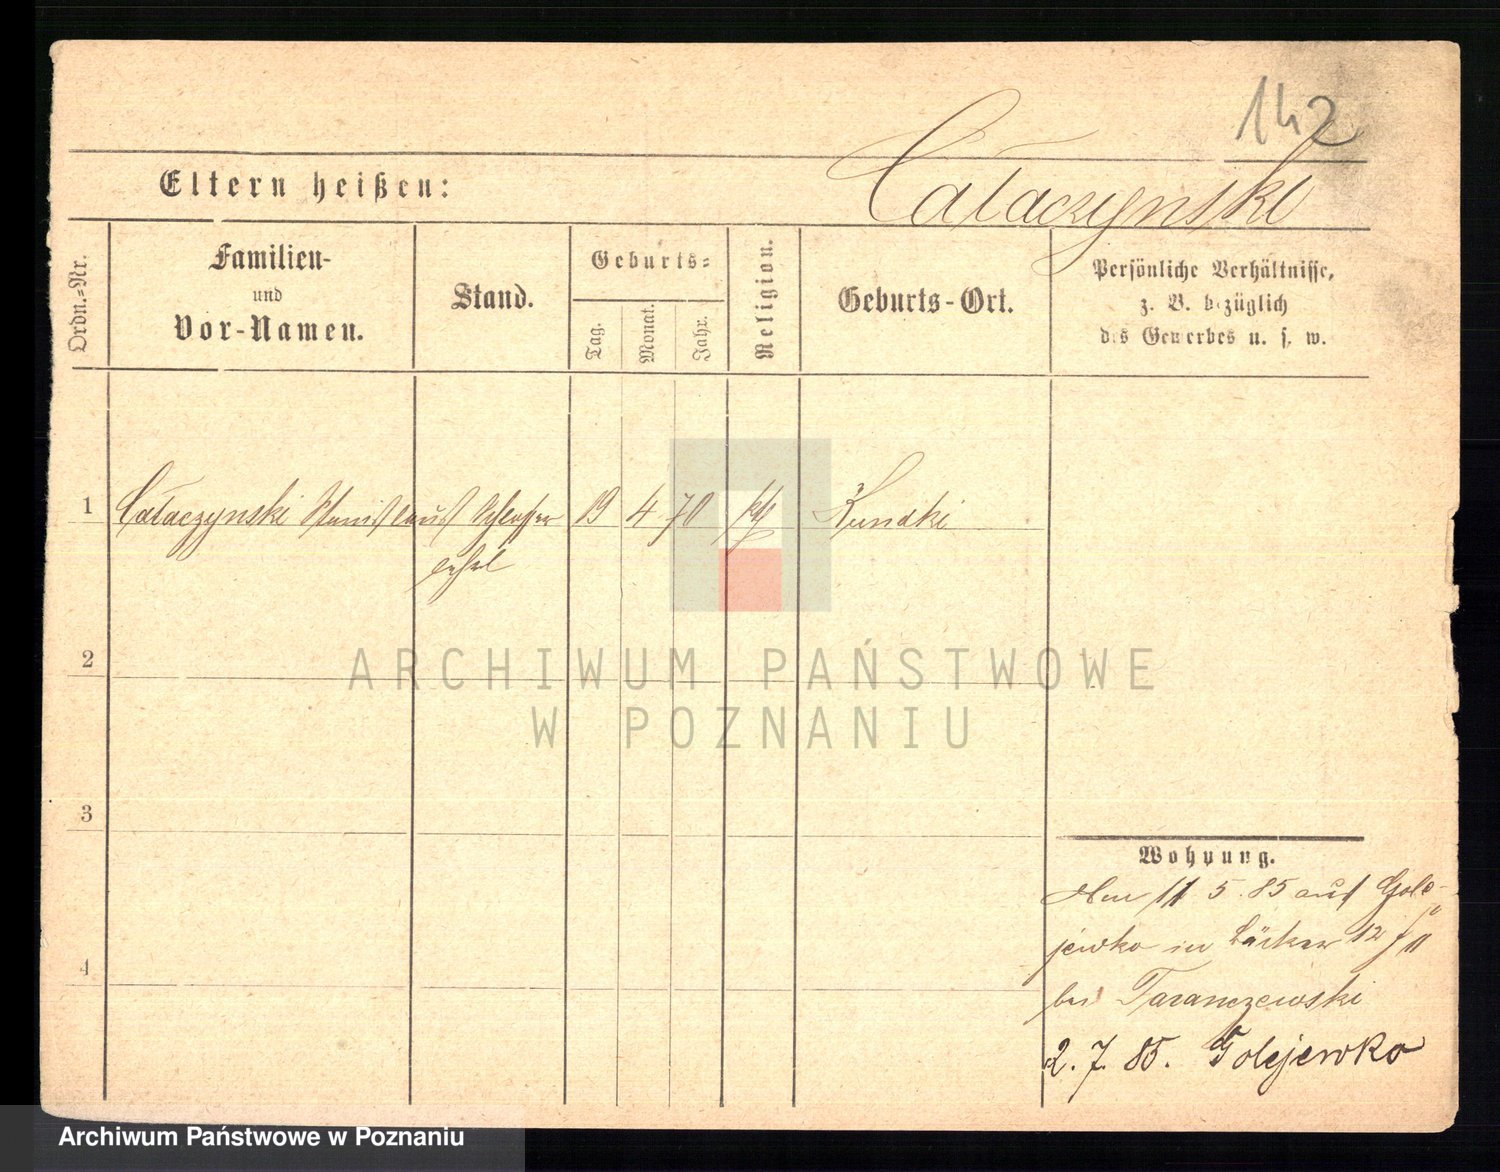 142
Całaczynski
Eltern heißen:
Ordn.=Nr.
Familien-
und
Vor-Namen.
Stand.
Geburts=
Tag.
Monat.
Jahr.
Religion.
Geburts-Ort.
Persönliche Verhältnisse,
z. B. bezüglich
des Gewerbes u. s. w.
1 Całaczynski Stanislaus Schlosser 19 4 70 kth Kundki
2
3
4
Wohnung.
Am 11 5. 85 aus Gole-
jewko in Bäcker 12
bei Taranczewski
2. 7. 85. Golejewko
ARCHIWUM PAŃSTWOWE
W POZNANIU
Archiwum Państwowe w Poznaniu